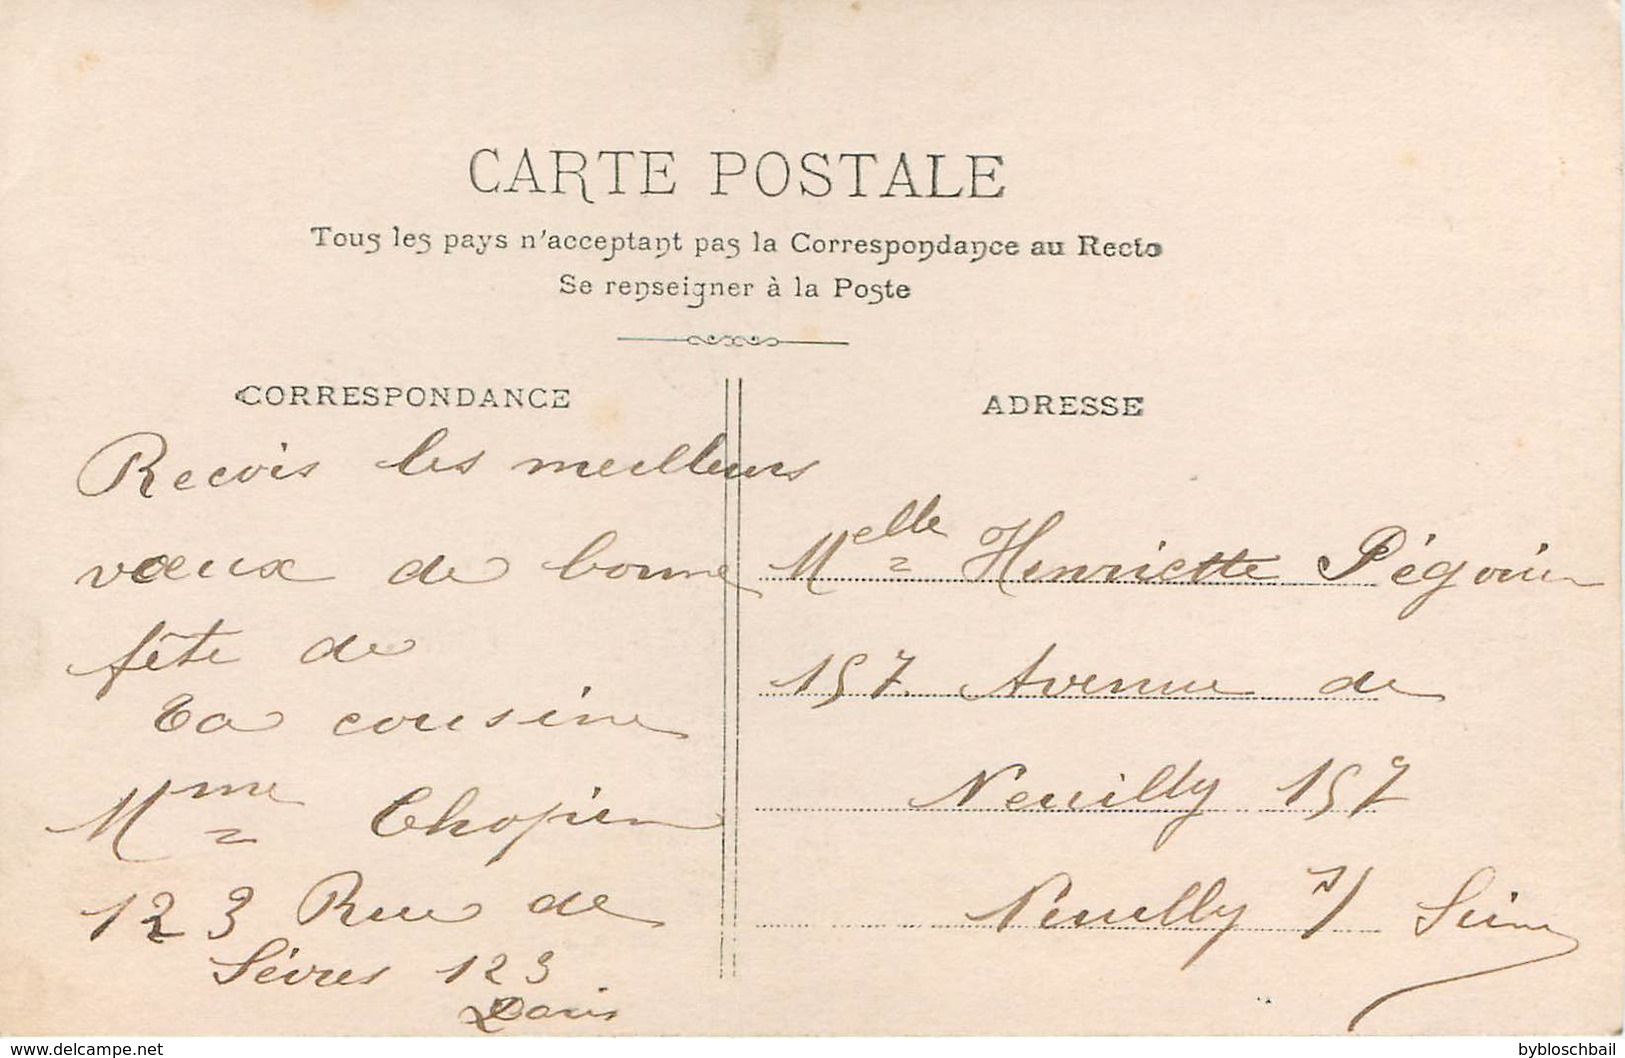 CARTE POSTALE
Tous les pays n'acceptant pas la Correspondance au Recto
Se renseigner à la Poste
CORRESPONDANCE
Recois les meilleurs
vœux de bonne
fête de
ta cousine
Mme Chopin
123 Rue de
Sèvres 123
Paris
ADRESSE
Melle Henriette
157 Avenue de
Neuilly 157
Neuilly s/ Seine
delcampe.net
bybloschbail